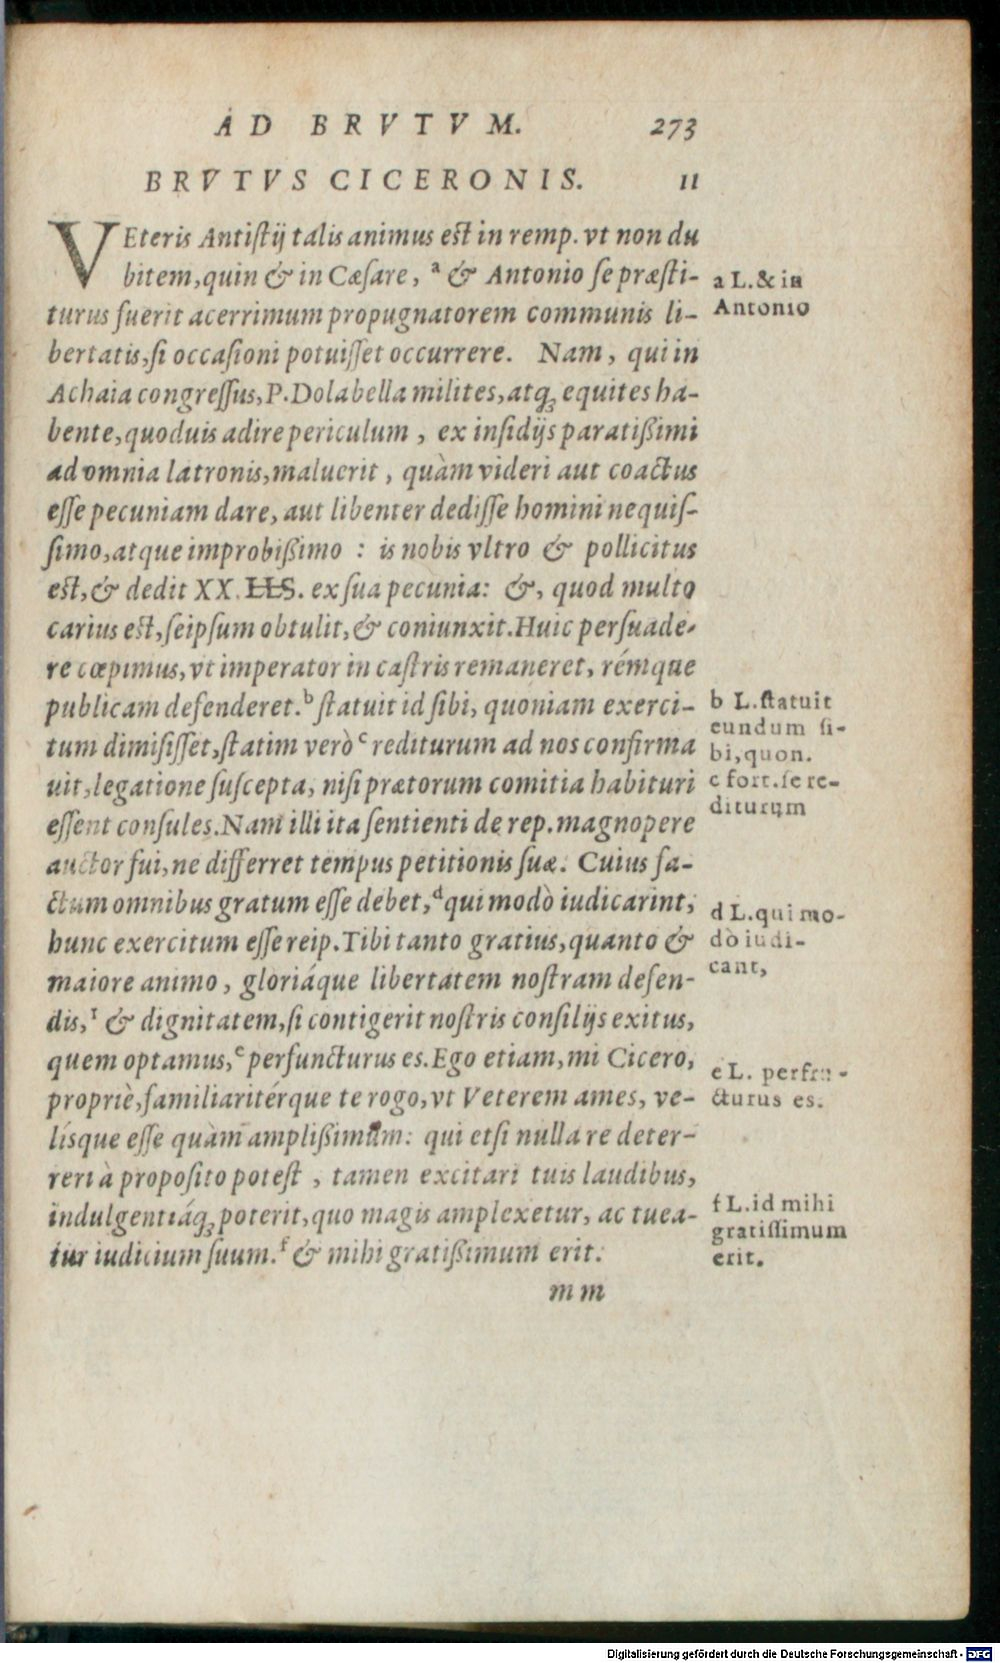 AD BRVTVM. 273
BRVTVS CICERONIS. 11
VEteris Antistij talis animus est in remp. vt non du
bitem, quin & in Cæsare, a & Antonio se præsti-
turus fuerit acerrimum propugnatorem communis li-
bertatis, si occasioni potuisset occurrere. Nam, qui in
Achaia congressus, P. Dolabella milites, atq; equites ha-
bente, quoduis adire periculum, ex insidijs paratißimi
ad omnia latronis, maluerit, quàm videri aut coactus
esse pecuniam dare, aut libenter dedisse homini nequis-
simo, atque improbißimo : is nobis vltro & pollicitus
est, & dedit XX. HS. ex sua pecunia: &, quod multo
carius est, seipsum obtulit, & coniunxit. Huic persuade-
re cœpimus, vt imperator in castris remaneret, rémque
publicam defenderet. b statuit id sibi, quoniam exerci-
tum dimisisset, statim verò c rediturum ad nos confirma
uit, legatione suscepta, nisi prætorum comitia habituri
essent consules. Nam illi ita sentienti de rep. magnopere
auctor fui, ne differret tempus petitionis suæ. Cuius fa-
ctum omnibus gratum esse debet, d qui modò iudicarint,
hunc exercitum esse reip. Tibi tanto gratius, quanto &
maiore animo, gloriáque libertatem nostram defen-
dis, 1 & dignitatem, si contigerit nostris consilijs exitus,
quem optamus, e perfuncturus es. Ego etiam, mi Cicero,
propriè, familiaritérque te rogo, vt Veterem ames, ve-
lísque esse quàm amplißimum: qui etsi nulla re deter-
reri à proposito potest, tamen excitari tuis laudibus,
indulgentiáq; poterit, quo magis amplexetur, ac tuea-
tur iudicium suum. f & mihi gratißimum erit.
m m
a L. & in
Antonio
b L. statuit
eundum si-
bi, quon.
c fort. se re-
diturum
d L. qui mo-
dò iudi-
cant,
e L. perfru-
cturus es.
f L. id mihi
gratissimum
erit.
Digitalisierung gefördert durch die Deutsche Forschungsgemeinschaft - DFG